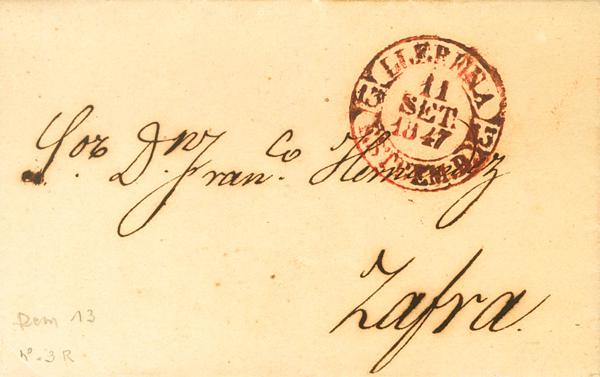 LLERENA
11
SET.
1847
ESTREMAD.
Sor. Dn. Franco. Hernandez
Zafra.
13
nº 3 R